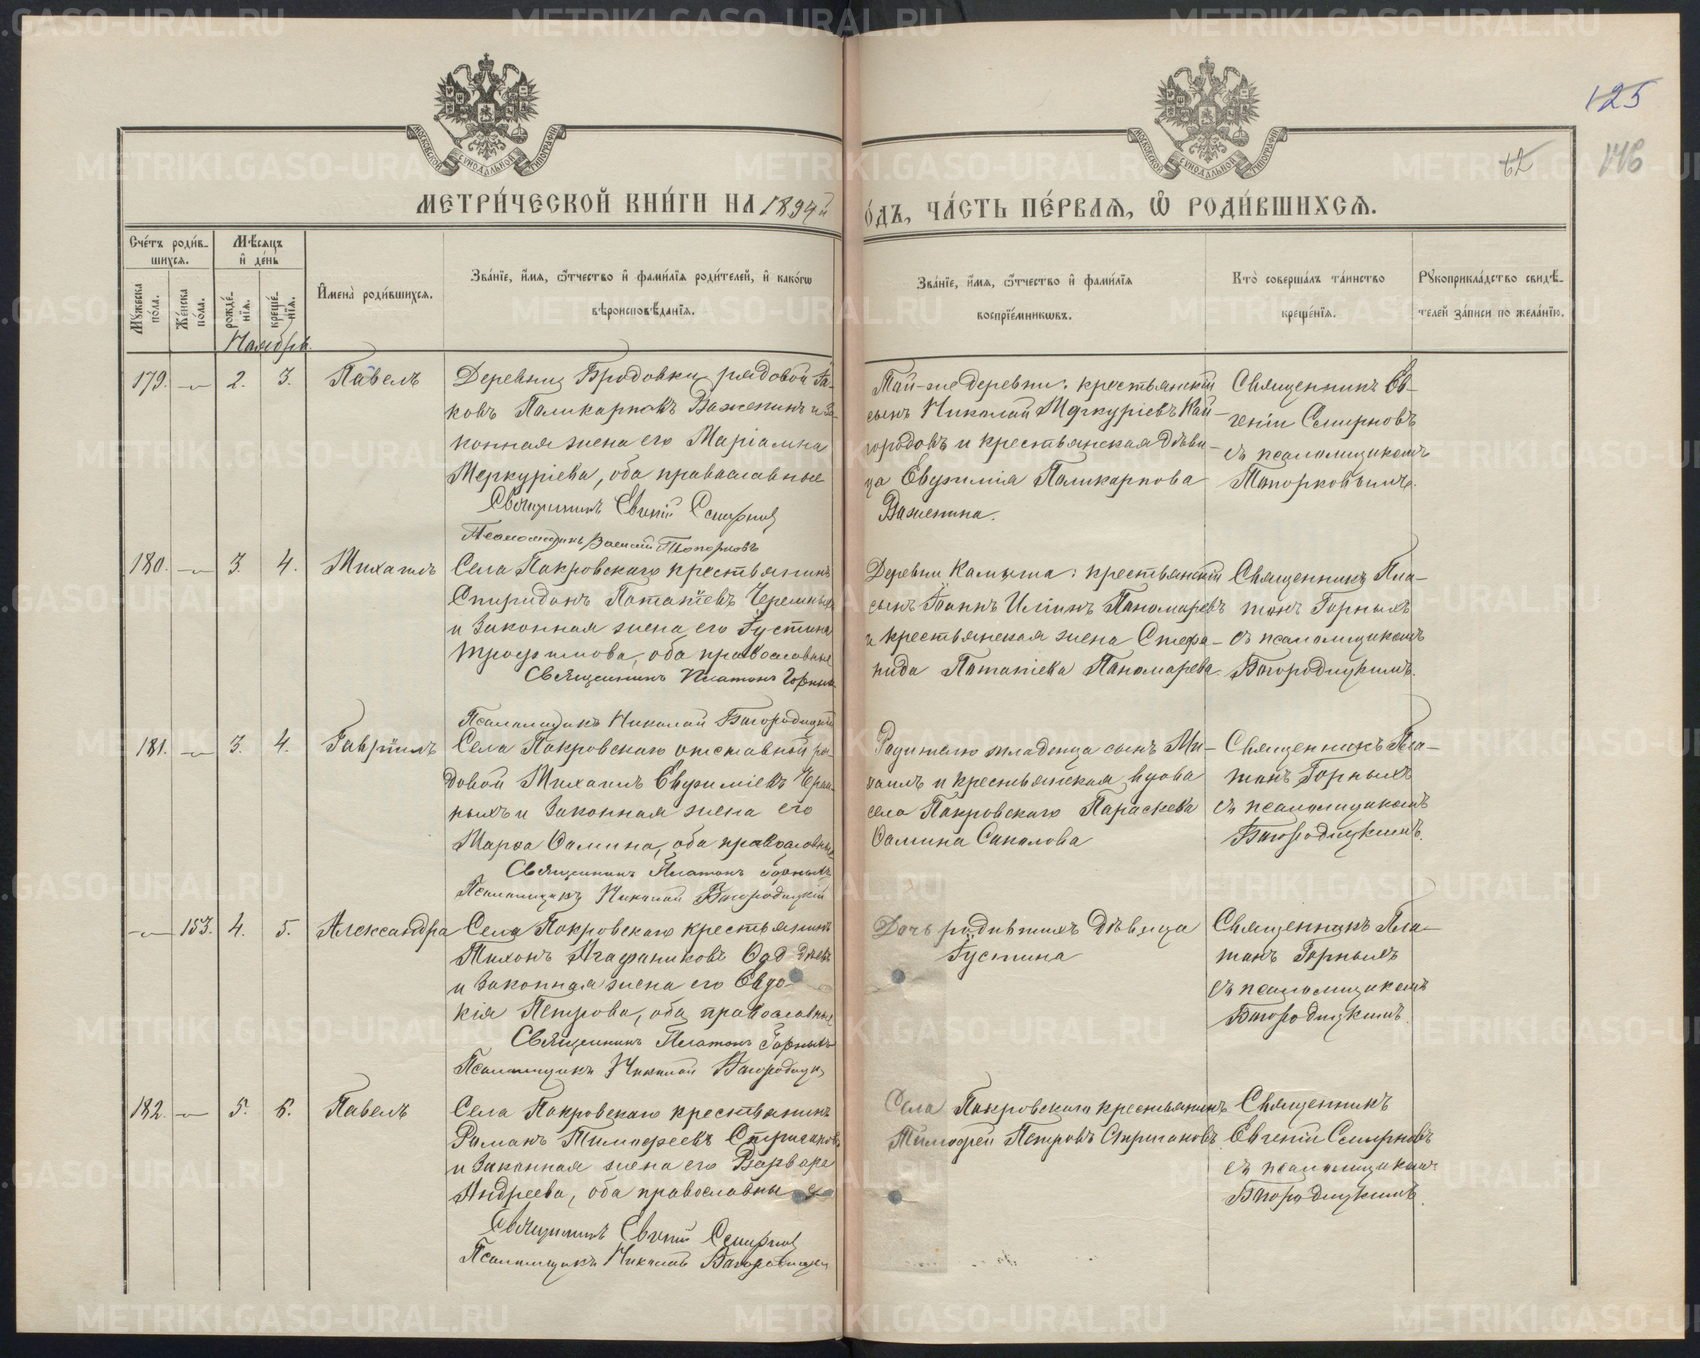 125
62
МОСКОВСКОЙ СѴНОДАЛЬНОЙ ТИПОГРАФІИ
МОСКОВСКОЙ СѴНОДАЛЬНОЙ ТИПОГРАФІИ
МЕТРИ́ЧЕСКОЙ КНИ́ГИ НА 1894й
ГО́ДЪ, ЧА́СТЬ ПЕ́РВАЯ, Ѽ РОДИ́ВШИХСЯ.
Сче́тъ роди́в-
шихся.
Мѣ́сяцъ
и҆ де́нь
Мꙋ́жеска по́ла.
Же́нска по́ла.
рожде́-
нїя.
креще́-
нїя.
И҆мена̀ роди́вшихся.
Зва́нїе, и҆́мя, ѻ҆́тчество и҆ фами́лїя роди́телей, и҆ како́гѡ
вѣроисповѣ́данїя.
Зва́нїе, и҆́мя, ѻ҆́тчество и҆ фами́лїя
воспрїе́мникѡвъ.
Кто̀ соверша́лъ та́инство
креще́нїя.
Рꙋкоприкла́дство свидѣ́-
телей за́писи по жела́нїю.
Ноябрь.
179. — 2. 3. Павелъ
Деревни Бродовки рядовой Іа-
ковъ Поликарповъ Важенинъ и за-
конная жена его Маріамна
Меркуріева, оба православные
Священникъ Евгеній Смирновъ
Псаломщикъ Василій Топорковъ
Той-же деревни: крестьянскій
сынъ Николай Меркуріевъ Кай-
городовъ и крестьянская дѣви-
ца Евфимія Поликарпова
Важенина.
Священникъ Ев-
геній Смирновъ
съ псаломщикомъ
Топорковымъ.
180. — 3. 4. Михаилъ
Села Покровскаго крестьянинъ
Спиридонъ Потапіевъ Черемныхъ
и законная жена его Іустина
Трофимова, оба православные
Священникъ Платонъ Горныхъ
Псаломщикъ Николай Богородицкій
Деревни Камыша: крестьянскій
сынъ Іоаннъ Иліинъ Пономаревъ
и крестьянская жена Стефа-
нида Потапіева Пономарева.
Священникъ Пла-
тонъ Горныхъ
съ псаломщикомъ
Богородицкимъ.
181. — 3. 4. Гавріилъ
Села Покровскаго отставной ря-
довой Михаилъ Евфиміевъ
ныхъ и законная жена его
Марѳа Ѳомина, оба православные
Священникъ Платонъ Горныхъ
Псаломщикъ Николай Богородицкій
Родителю младенца сынъ Ми-
хаилъ и крестьянская вдова
села Покровскаго Параскева
Ѳомина Соколова
Священникъ Пла-
тонъ Горныхъ
съ псаломщикомъ
Богородицкимъ.
— 153. 4. 5. Александра
Села Покровскаго крестьянинъ
Тихонъ Агафониковъ
и законная жена его Евдо-
кія Петрова, оба православные
Священникъ Платонъ Горныхъ
Псаломщикъ Николай Богородицкій
Дочь родившихъ дѣвица
Іустина
Священникъ Пла-
тонъ Горныхъ
съ псаломщикомъ
Богородицкимъ.
182. — 5. 6. Павелъ
Села Покровскаго крестьянинъ
Романъ Тимофеевъ Стригановъ
и законная жена его Варвара
Андреева, оба православные
Священникъ Евгеній Смирновъ
Псаломщикъ Николай Богородицкій
Села Покровскаго крестьянинъ
Тимофей Петровъ Стригановъ
Священникъ
Евгеній Смирновъ
съ псаломщикомъ
Богородицкимъ.
METRIKI.GASO-URAL.RU